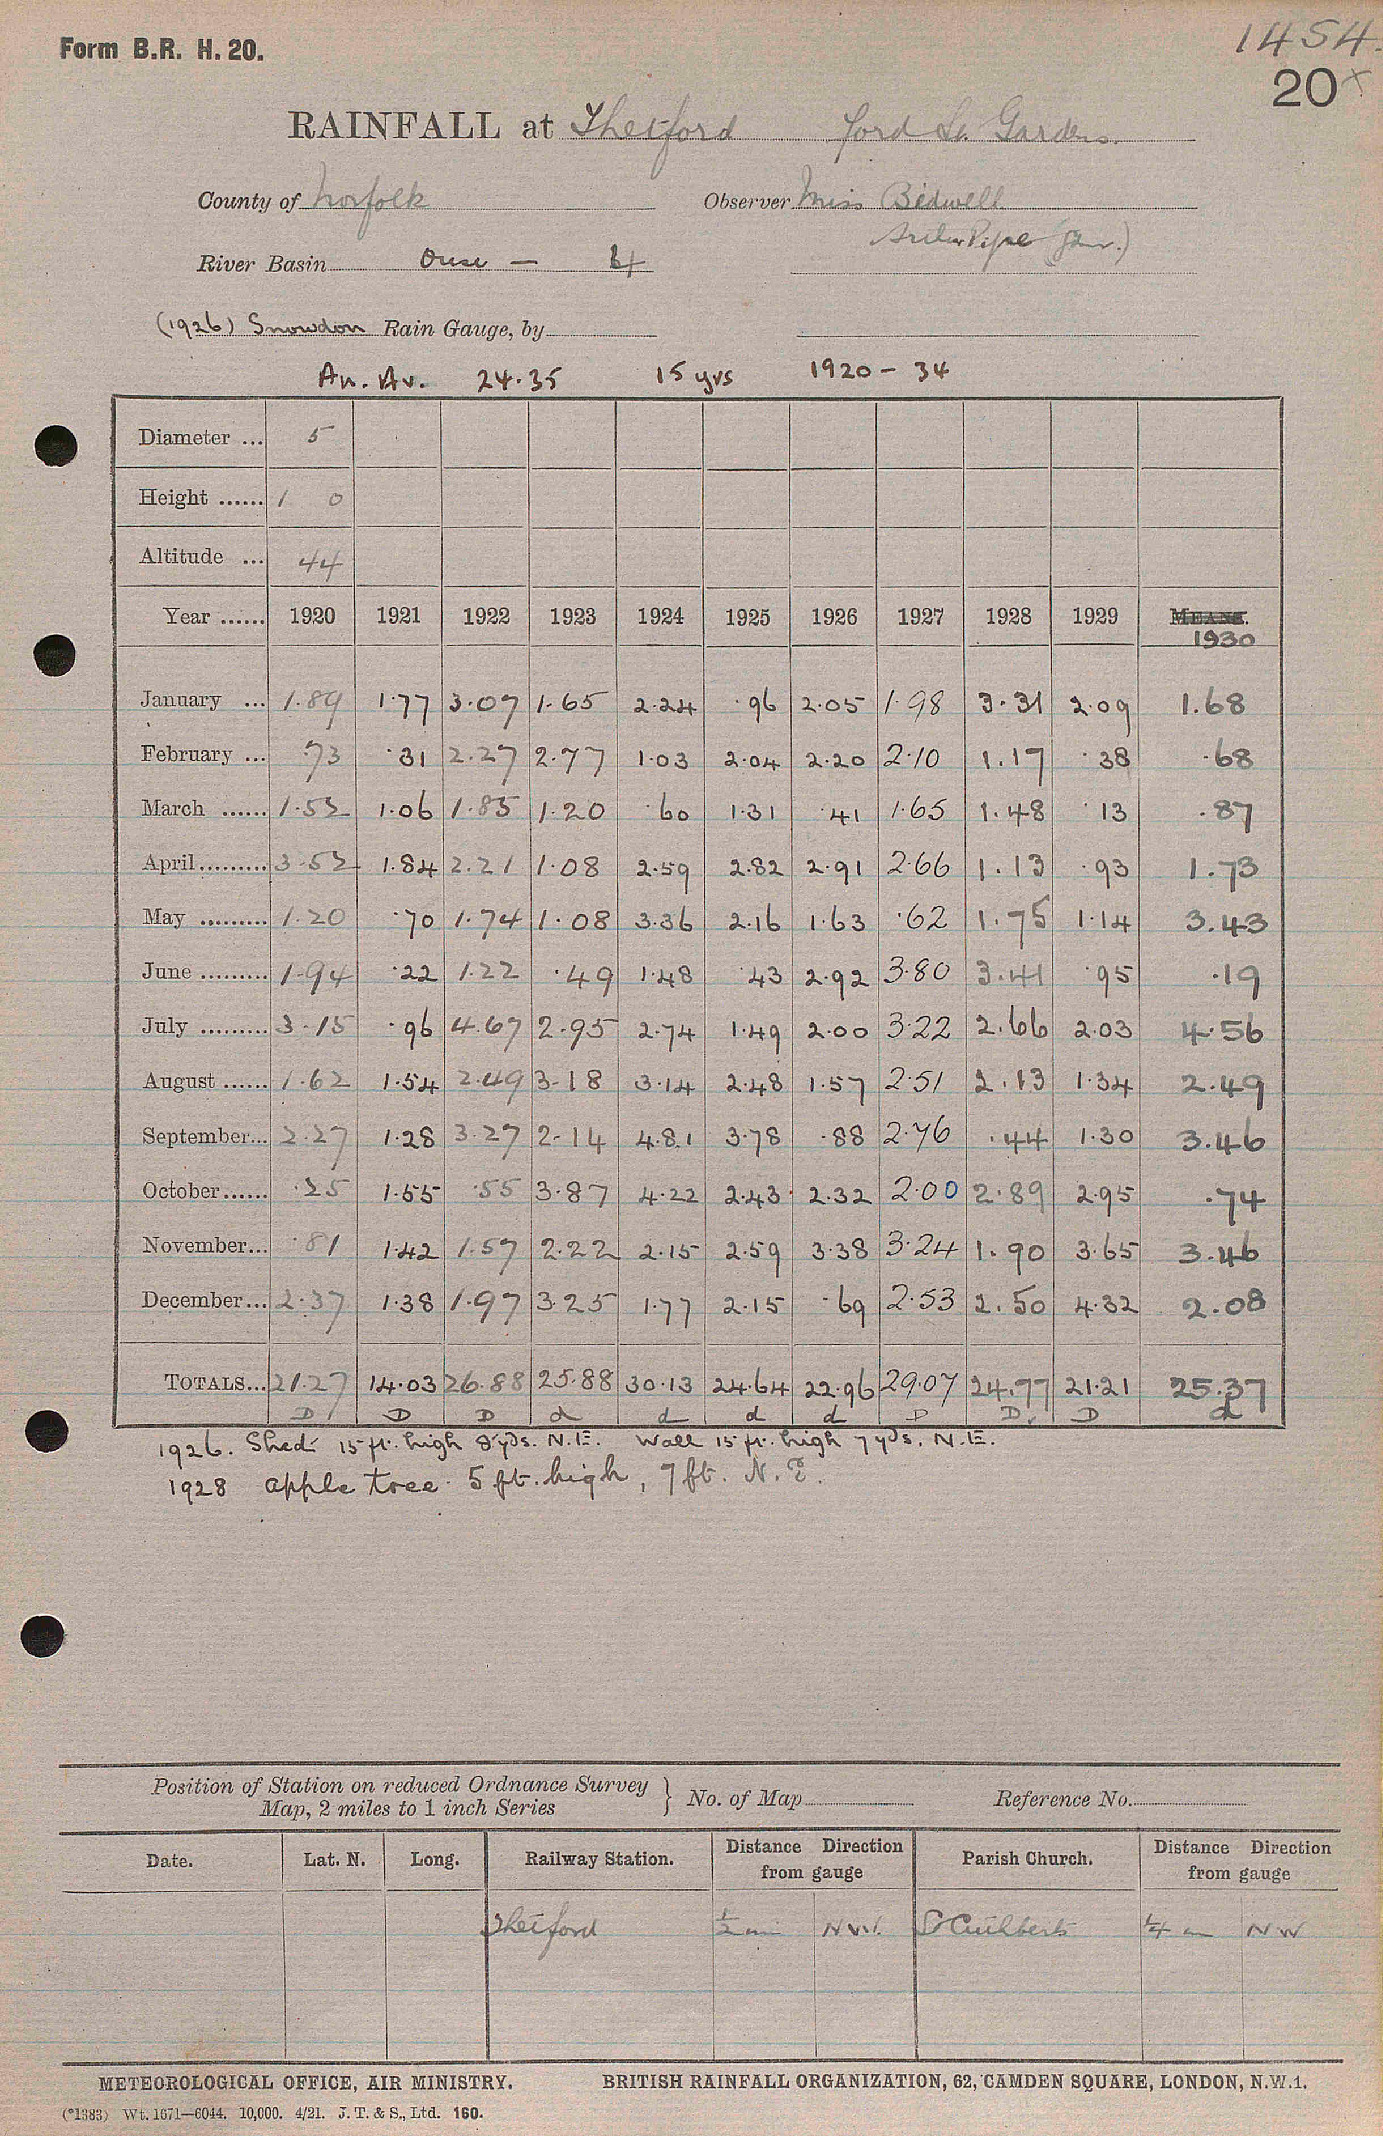 Form B.R. H. 20.
1454.
20 x
RAINFALL at Thetford Ford St. Gardens.
County of Norfolk Observer Miss Bidwell
River Basin Ouse — 4
(1926) Snowdon Rain Gauge, by
An. Av. 24.35 15 yrs 1920 - 34
Diameter ... 5
Height ...... 1 0
Altitude ... 44
Year ...... 1920 1921 1922 1923 1924 1925 1926 1927 1928 1929 MEANS. 1930
January ... 1.89 1.77 3.07 1.65 2.24 .96 2.05 1.98 3.31 2.09 1.68
February ... .73 .31 2.27 2.77 1.03 2.04 2.20 2.10 1.17 .38 .68
March ...... 1.52 1.06 1.85 1.20 .60 1.31 .41 1.65 1.48 .13 .87
April ......... 3.52 1.84 2.21 1.08 2.59 2.82 2.91 2.66 1.13 .93 1.73
May ......... 1.20 .70 1.74 1.08 3.36 2.16 1.63 .62 1.75 1.14 3.43
June ......... 1.94 .22 1.22 .49 1.48 .43 2.92 3.80 3.41 .95 .19
July ......... 3.15 .96 4.67 2.95 2.74 1.49 2.00 3.22 2.66 2.03 4.56
August ...... 1.62 1.54 2.49 3.18 3.14 2.48 1.57 2.51 2.13 1.34 2.49
September... 2.27 1.28 3.27 2.14 4.81 3.78 .88 2.76 .44 1.30 3.46
October...... .25 1.55 .55 3.87 4.22 2.43 2.32 2.00 2.89 2.95 .74
November... .81 1.42 1.57 2.22 2.15 2.59 3.38 3.24 1.90 3.65 3.46
December... 2.37 1.38 1.97 3.25 1.77 2.15 .69 2.53 2.50 4.32 2.08
TOTALS... 21.27 14.03 26.88 25.88 30.13 24.64 22.96 29.07 24.77 21.21 25.37
D D D d d d d D D. D d
1926. Shed 15 ft. high 8 yds. N.E. Wall 15 ft. high 7 yds. N.E.
1928 apple tree 5 ft. high, 7 ft. N.E.
Position of Station on reduced Ordnance Survey Map, 2 miles to 1 inch Series } No. of Map Reference No.
Date. Lat. N. Long. Railway Station. Distance Direction from gauge Parish Church. Distance Direction from gauge
Thetford 1/2 mi N W. St Cuthberts 1/4 m N W
METEOROLOGICAL OFFICE, AIR MINISTRY. BRITISH RAINFALL ORGANIZATION, 62, CAMDEN SQUARE, LONDON, N.W.1.
(*1383) Wt. 1671—6044. 10,000. 4/21. J. T. & S., Ltd. 160.